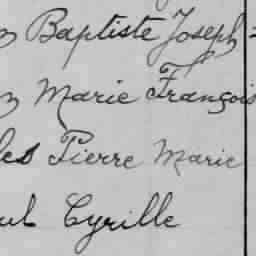 Baptiste Joseph
Marie François
les Pierre Marie
ul Cyrille